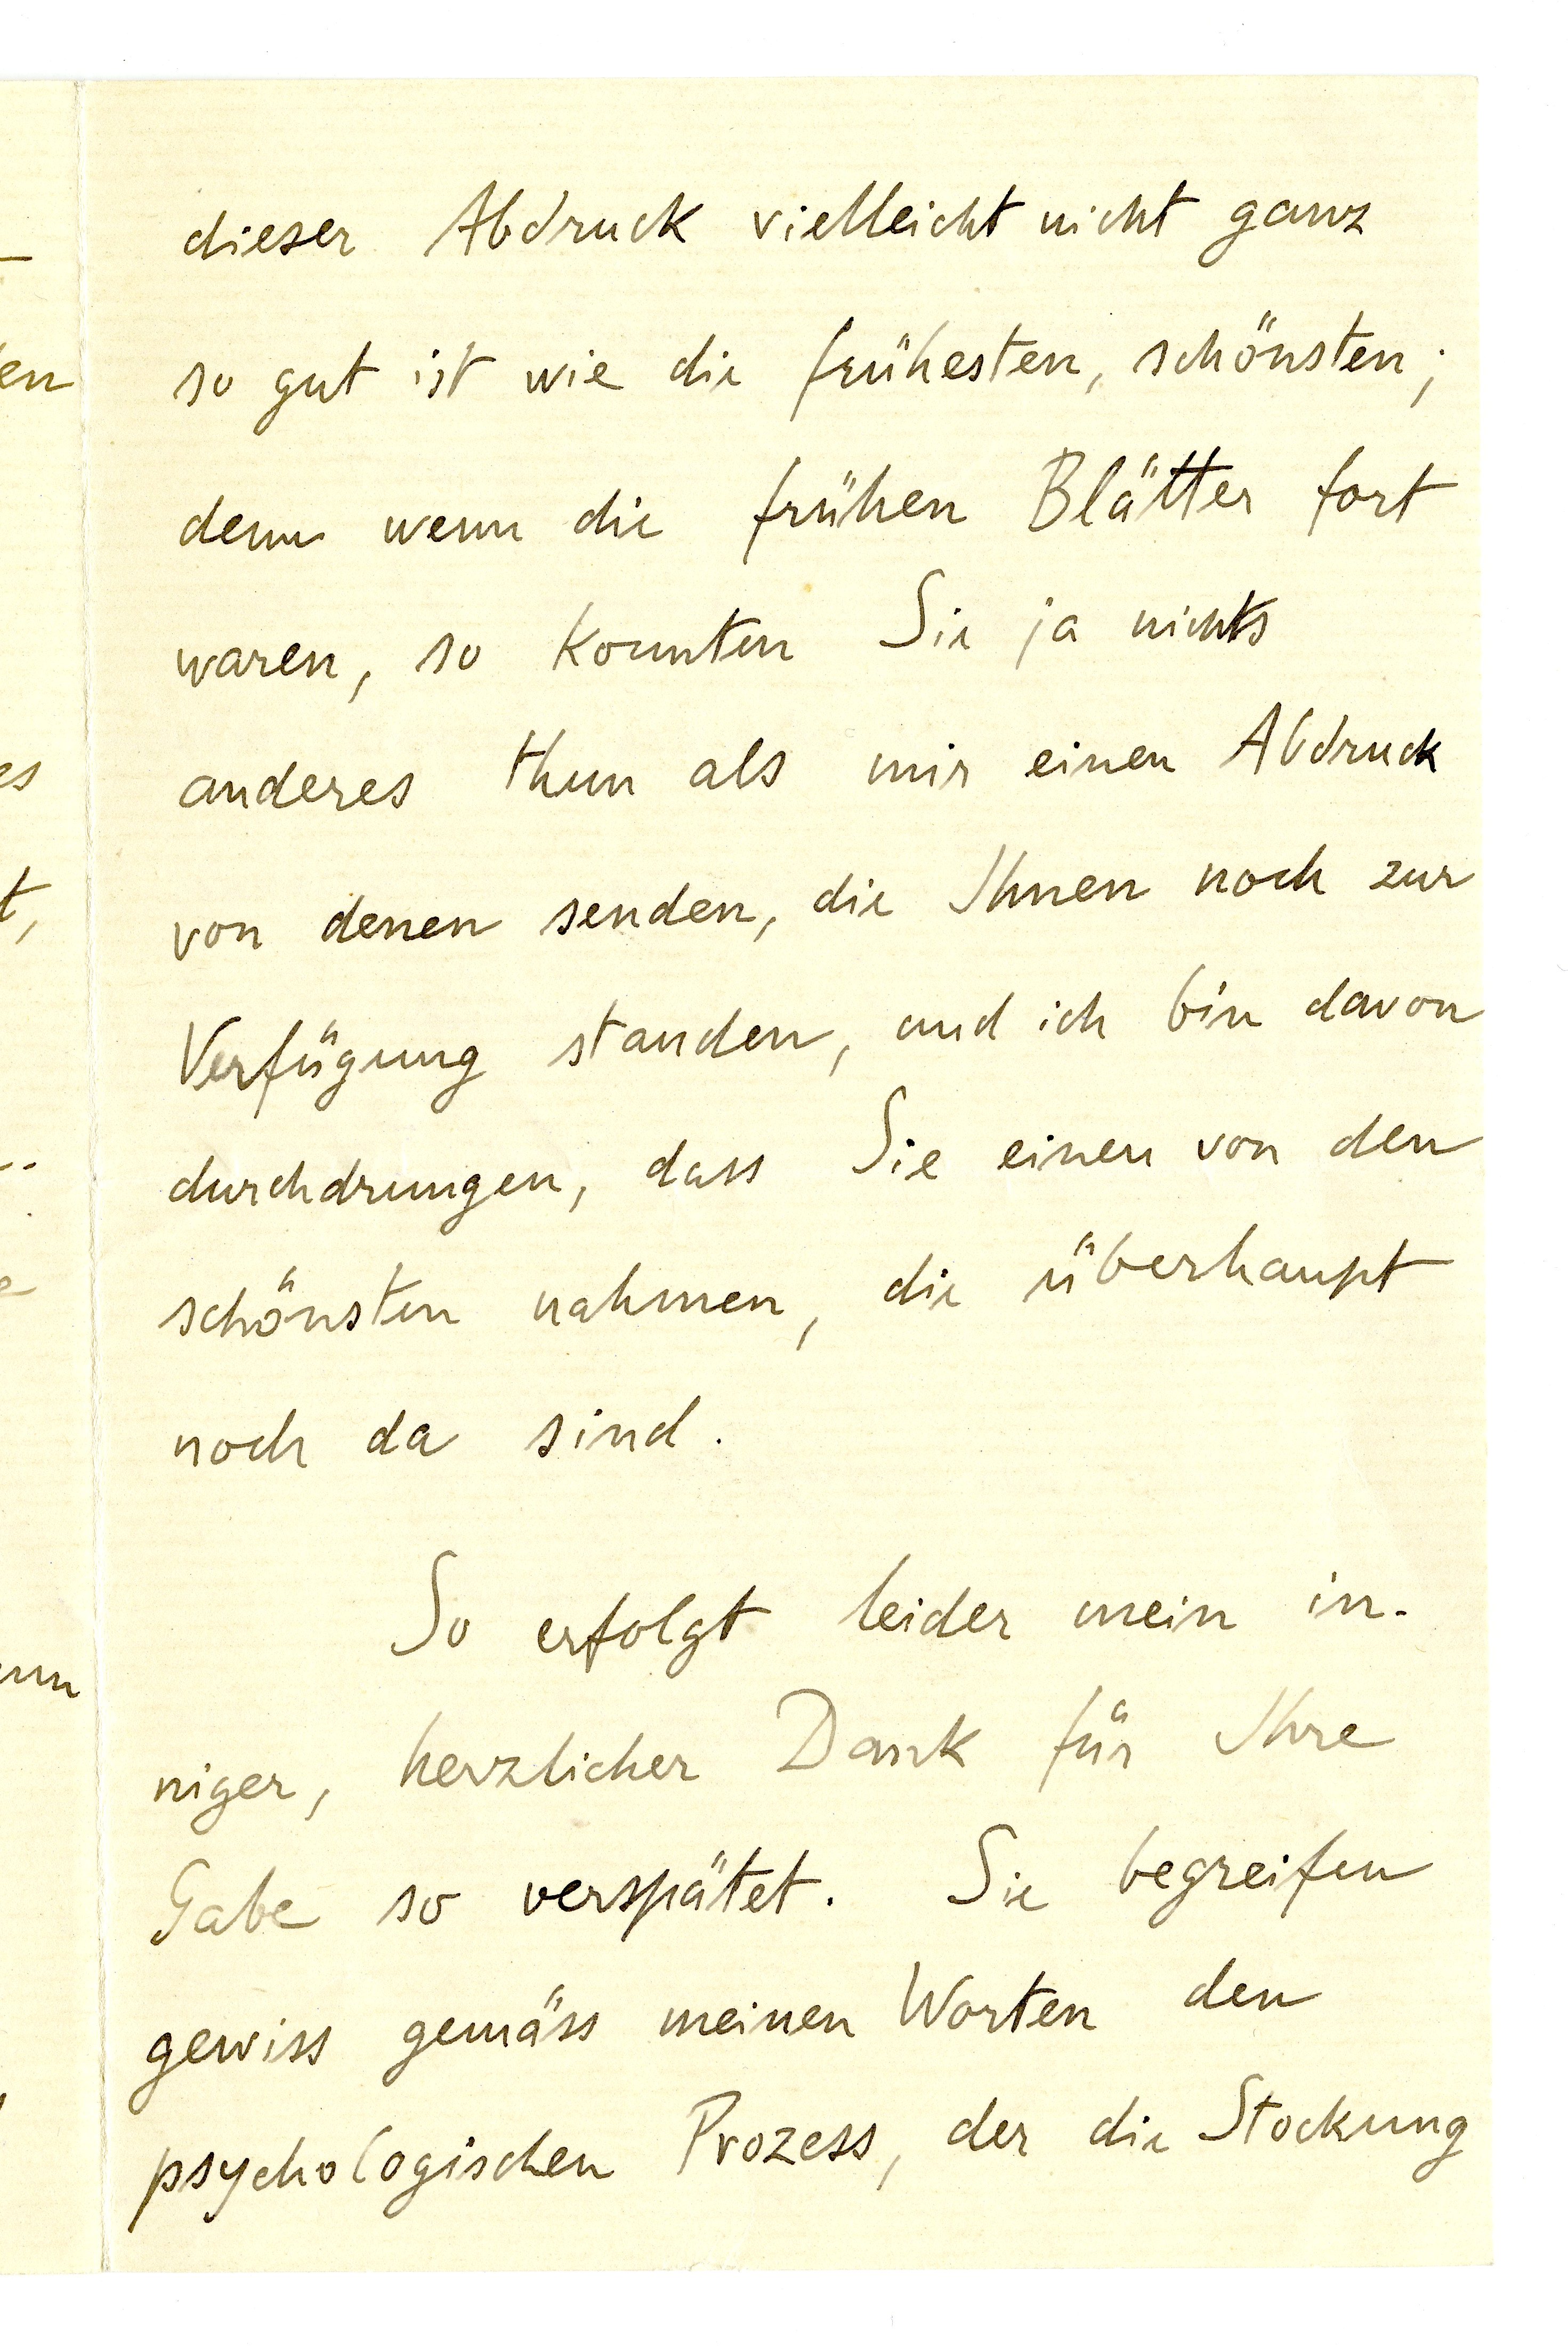 dieser Abdruck vielleicht nicht ganz
so gut ist wie die frühesten, schönsten;
denn wenn die frühen Blätter fort
waren, so konnten Sie ja nichts
anderes thun als mir einen Abdruck
von denen senden, die Ihnen noch zur
Verfügung standen, und ich bin davon
durchdrungen, dass Sie einen von den
schönsten nahmen, die überhaupt
noch da sind.
So erfolgt leider mein in-
niger, herzlicher Dank für Ihre
Gabe so verspätet. Sie begreifen
gewiss gemäss meinen Worten den
psychologischen Prozess, der die Stockung